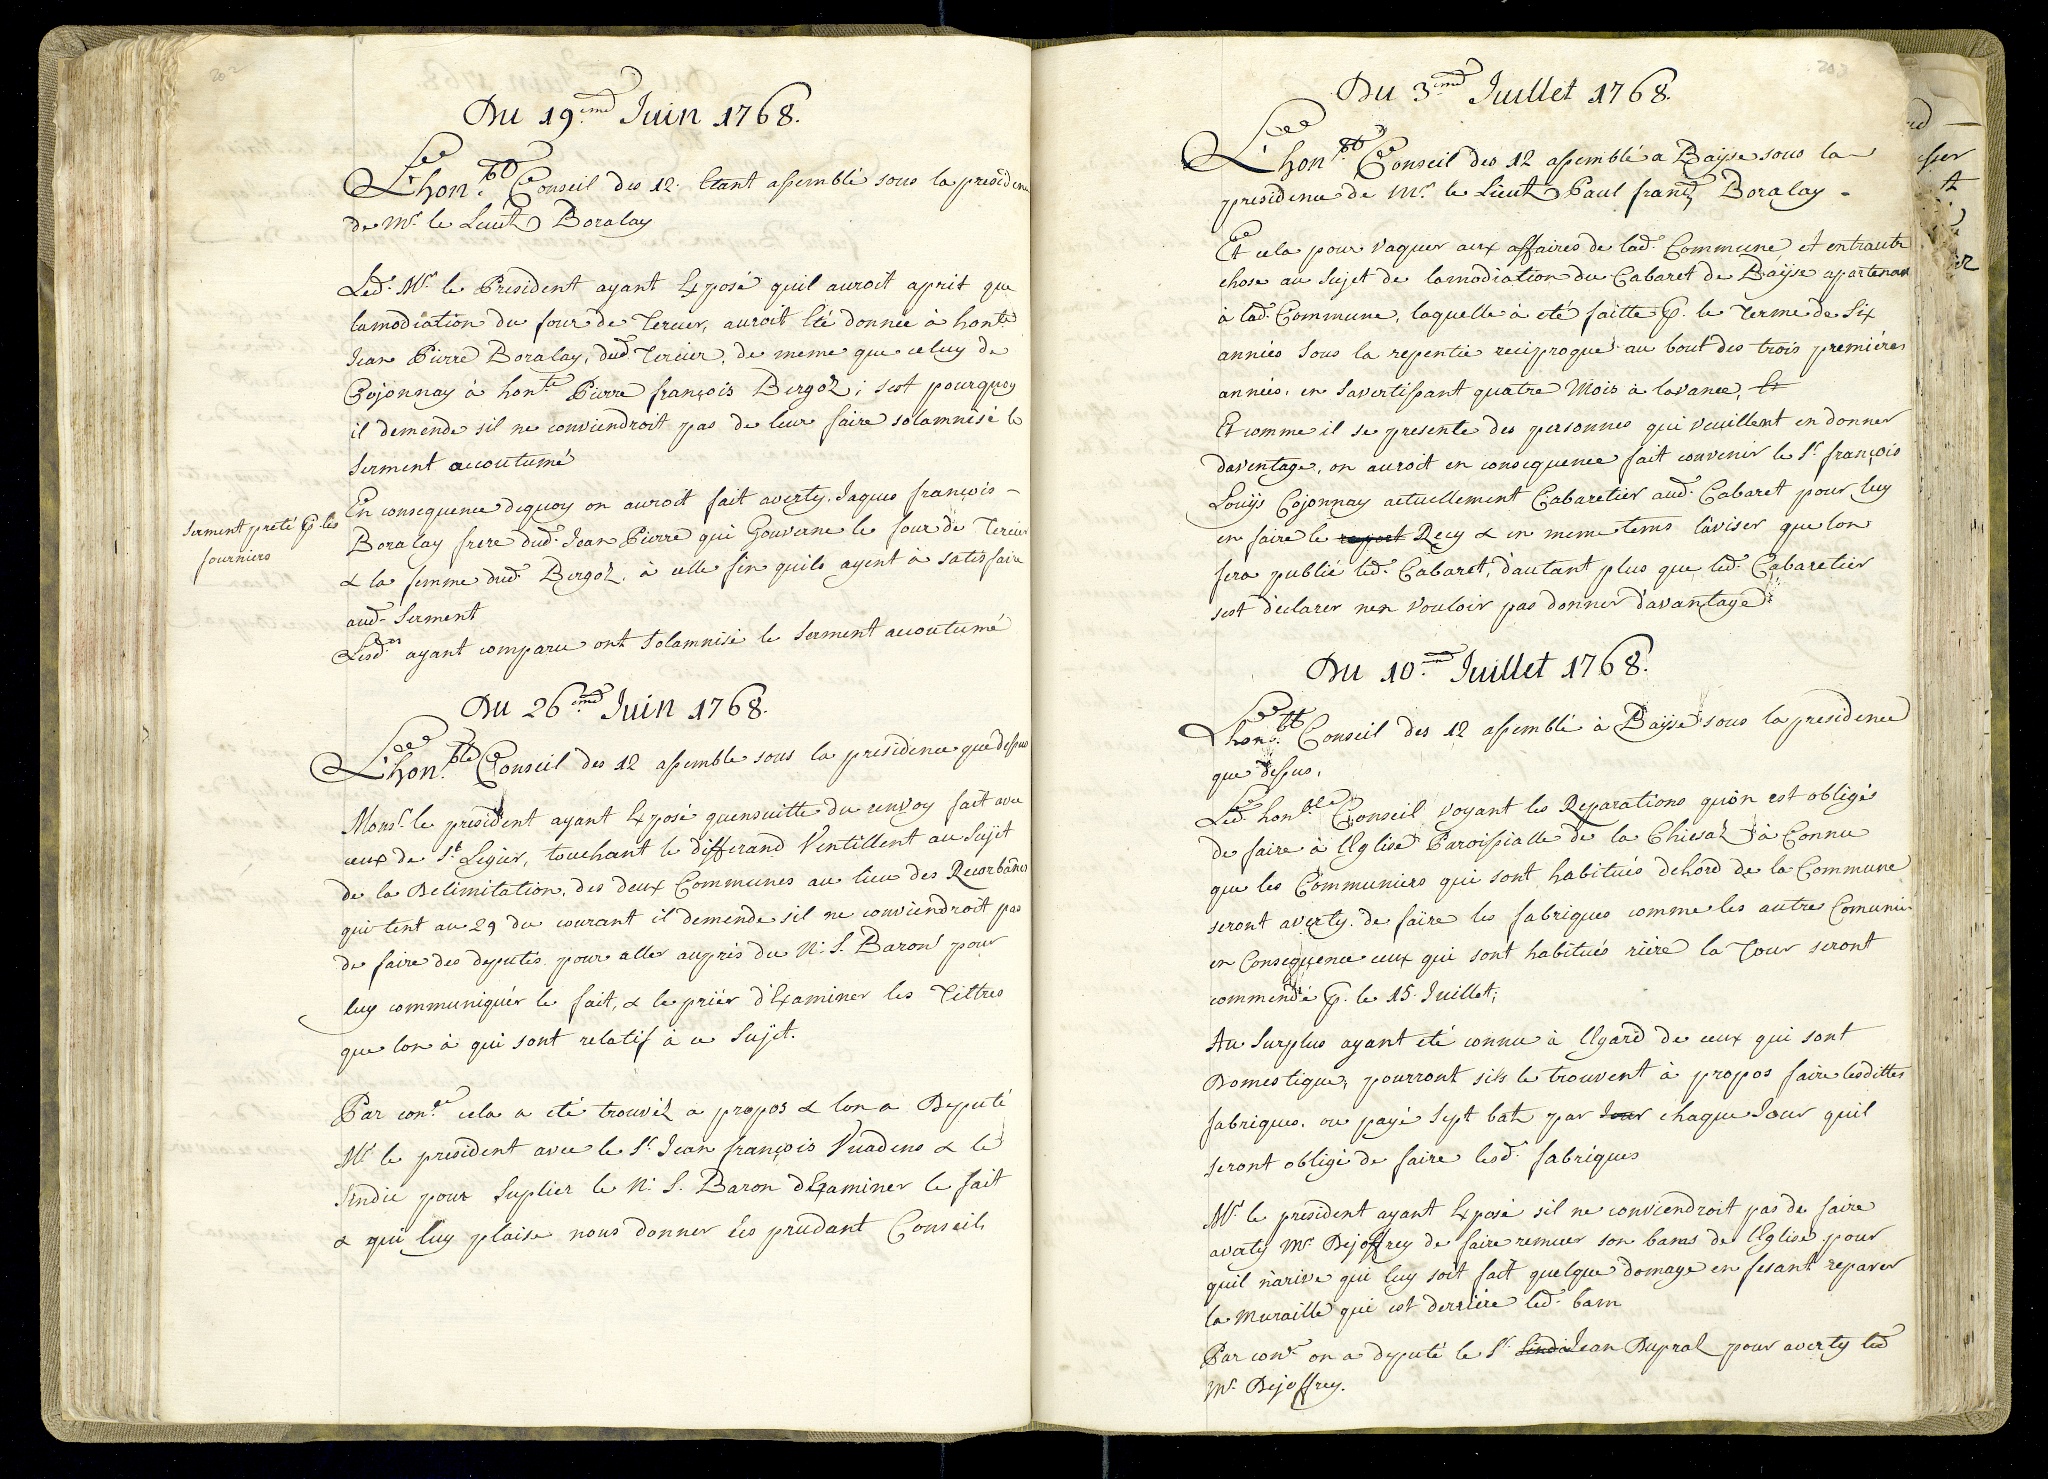 202
Du 19.eme Juin 1768.
L'hon.ble Conseil des 12. Etant assemblé sous la presidence
de Mr. le Lieut. Boralay
Led. Mr. le President ayant Exposé quil auroit aprit que
lamodiation du four de Tercier, auroit Eté donnée à hon.te
Jean Pierre Boralay, dud. Tercier, de meme que celuy de
Cojonnay à hon.te Pierre françois Bergoz; sest pourquoy
il demende sil ne conviendroit pas de leur faire solamnisé le
Serment accoutumé
En consequence dequoy on auroit fait averty. Jaques françois
Boralay frere dud. Jean Pierre qui Gouverne le four de Tercier
& la femme dud. Bergoz, à celle fin quils ayent à satisfaire
aud. Serment
Serment preté P. les
fourniers
Lesd. ayant comparu ont solamnisé le Serment accoutumé
Du 26.eme Juin 1768.
L'hon.ble Conseil des 12 assemble sous la presidence que dessus
Monsr. le president ayant Exposé quensuitte du renvoy fait avec
ceux de St. Legier, touchant le differand Ventillent au Sujet
de la Delimitation, des deux Communes au lieu des
qui tent au 29 du courant il demende sil ne conviendroit pas
de faire des deputés pour aller auprés du N. S. Baron pour
luy communiquér le fait, & le priër d'Examiner les Tiltres
que lon à qui sont relatif à ce Sujet.
Par con.ce cela a eté trouvéz a propos & lon a Deputé
Mr. le president avec le Sr. Jean françois Vuadens & le
Sindic pour Suplier le N. S. Baron dExaminer le fait
& qui luy plaise nous donner ses prudant Conseils
203
Du 3.eme Juillet 1768.
L'hon.ble Conseil des 12 assemblé a Bayse sous la
presidence de Mr. le Lieut. Paul franç. Boralay.
Et cela pour vaquer aux affaires de lad. Commune et entrautre
chose au Sujet de lamodiation du Cabaret de Bayse apartenant
à lad. Commune, laquelle à eté faitte P. le Terme de Six
années sous la repentie reciproque au bout des trois premiéres
années, en Savertissant quatre Mois à lavance, Et
Et comme il se presente des personnes qui veuillent en donner
daventage, on auroit en consequence fait convenir le Sr. françois
Louys Cojonnay actuellement Cabaretier aud. Cabaret pour luy
en faire le raport Recy & en meme tems l'aviser que lon
fera publié led. Cabaret, d'autant plus que led. Cabaretier
sest déclarer nen vouloir pas donner d'avantage.
Du 10.me Juillet 1768.
L'hon.ble Conseil des 12 assemblé à Bayse sous la presidence
que dessus.
Led. hon.ble Conseil voyant les Reparations qu'on est obligés
de faire à l'Eglise Paroissialle de la Chiesaz à Connu
que les Communiers qui sont habitués dehord de la Commune
seront averty. de faire les fabriques comme les autre Comunier
en Consequence ceux qui sont habitués riére la Tour seront
commendé P. le 15. Juillet;
Au Surplus ayant eté connu à l'Egard de ceux qui sont
Domestique, pourront sils le trouvent à propos faire lesdittes
fabriques. ou payé Sept batz par Jour chaque Jour quil
seront obligé de faire lesd. fabriques
Mr. le president ayant Exposé sil ne conviendroit pas de faire
averty Mr. Dejoffrey de faire remuer son banc de l'Eglise pour
quil n'arive qui luy soit fait quelque domage en fesant reparer
la Muraille qui est derriére led. banc
Par con.ce on a deputé le Sr. Sindic Jean Dupraz pour averty led.
Mr. Dejoffrey.